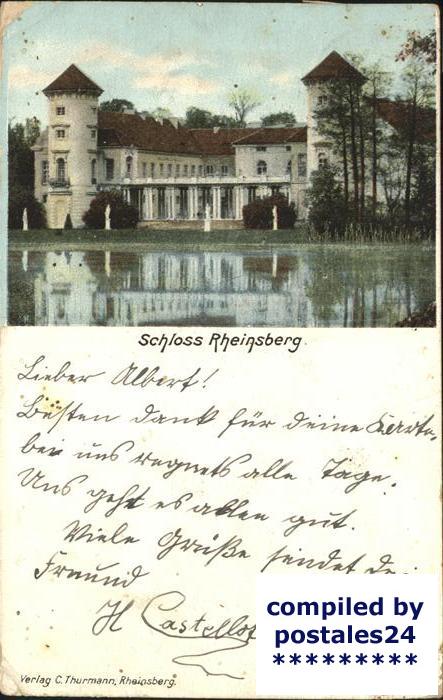 Schloss Rheinsberg.
Lieber Albert!
Besten dank für deine Karte,
bei uns regnets alle Tage.
Uns geht es allen gut.
Viele Grüße sendet
Freund
H Castellos
Verlag C. Thurmann, Rheinsberg.
compiled by
postales24
*********